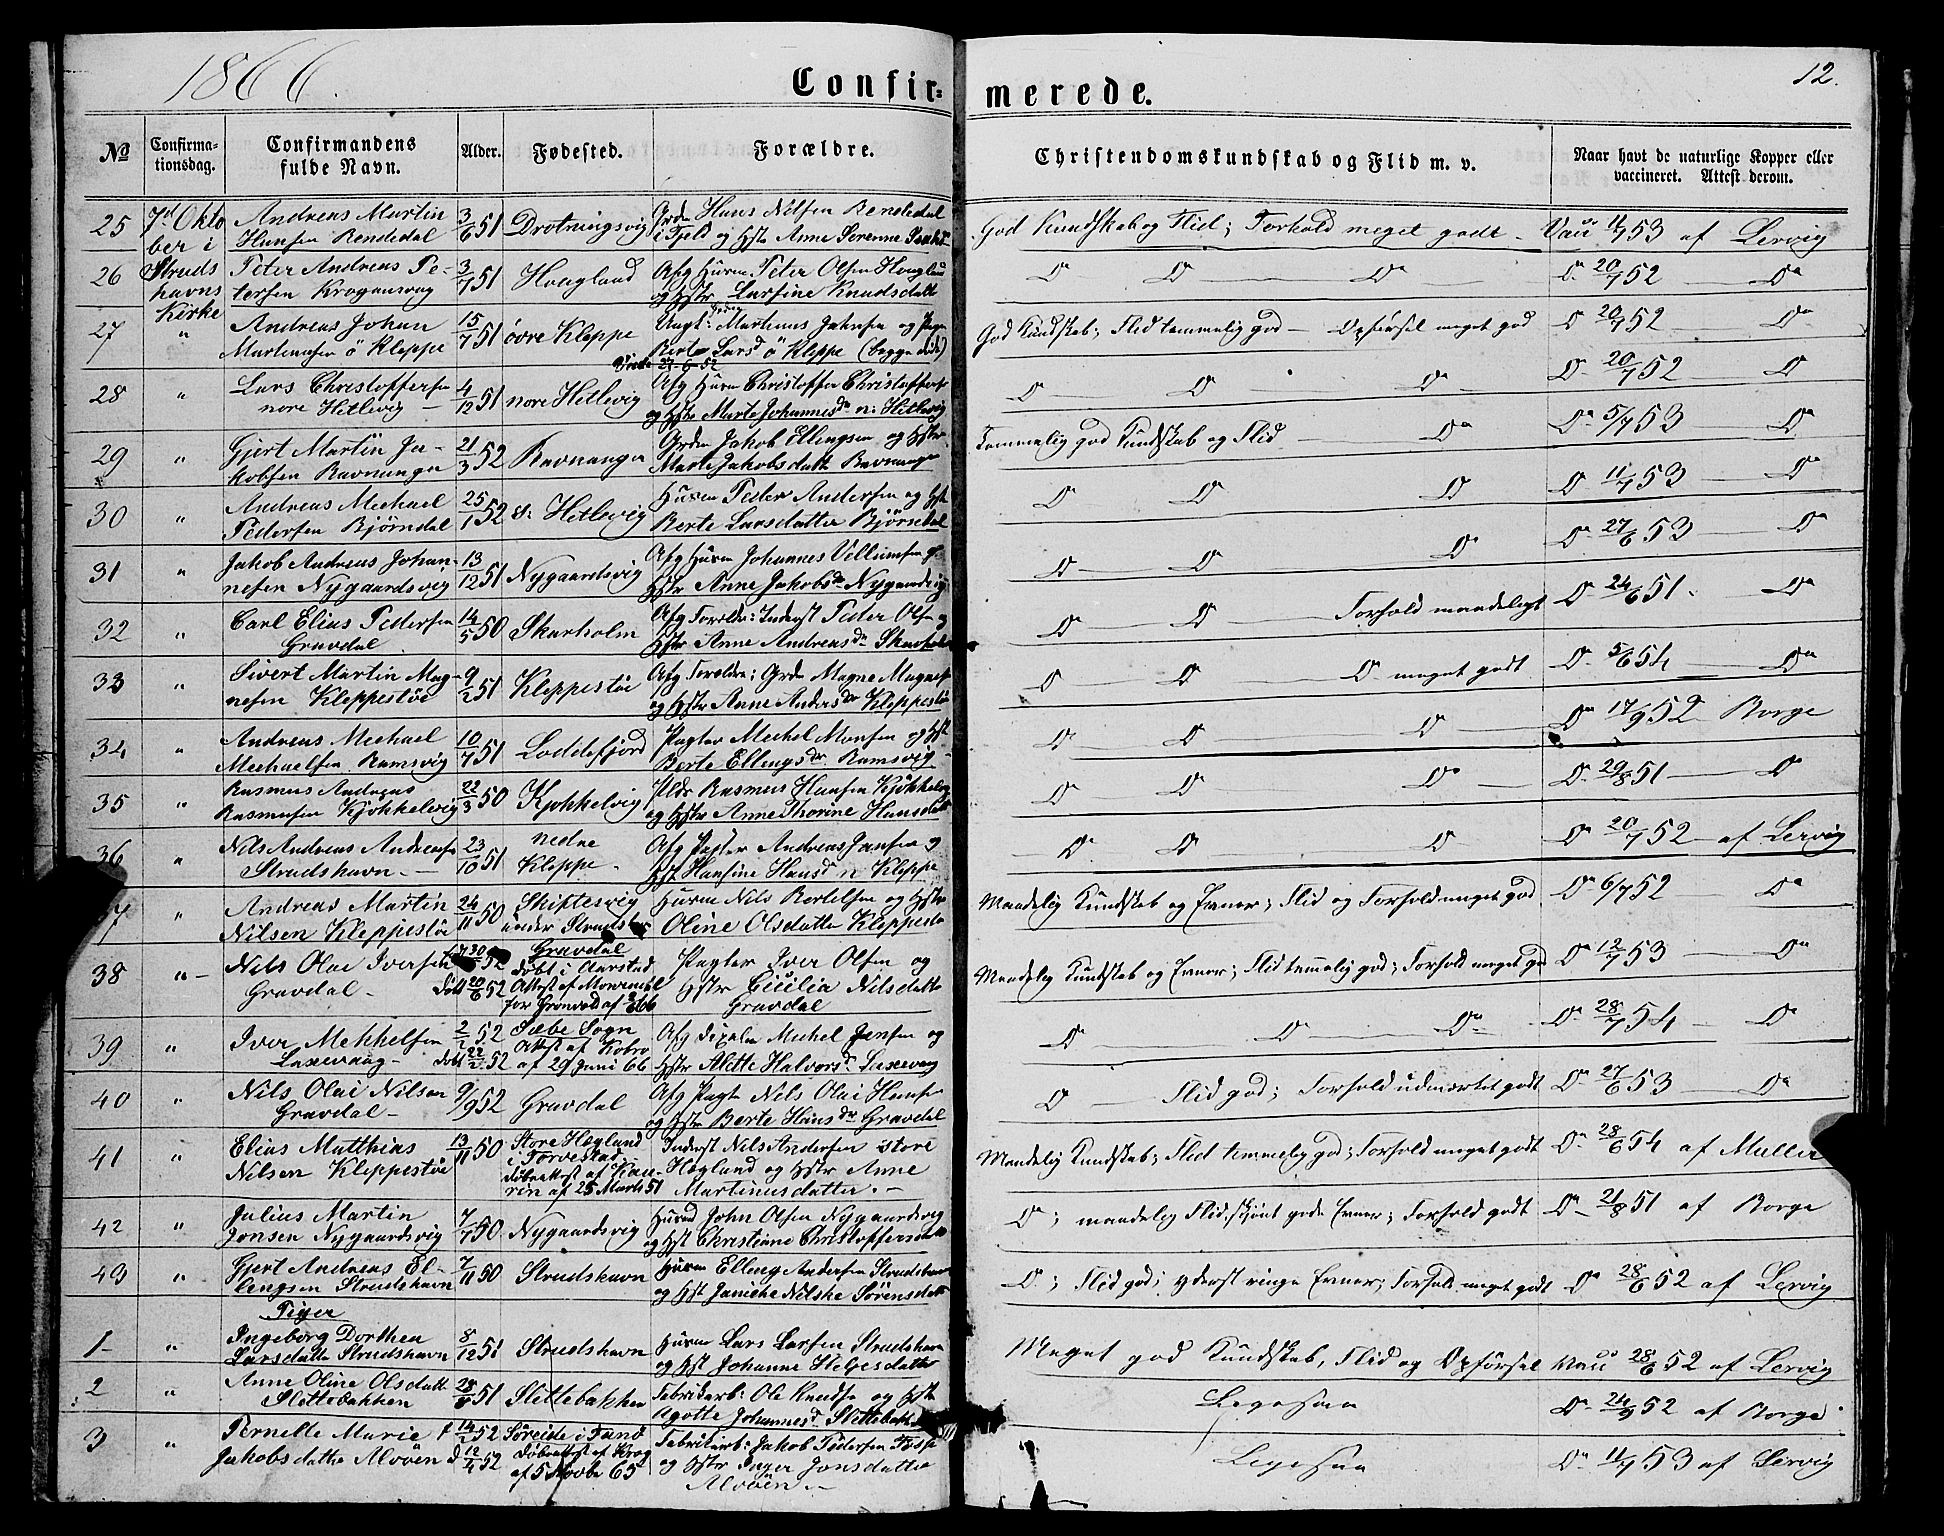 1866.
Confirmerede.
12.
№
Confirma-
tionsdag.
Confirmandens
fulde Navn.
Alder.
Fødested.
Forældre.
Christendomskundskab og Flid m. v.
Naar havt de naturlige Kopper eller
vaccineret. Attest derom.
7d Okto
ber i
Struds
havns
Kirke
25
Andreas Martin
Hansen Rendedal
3/6 51
Drotningsvig
Hans Nilsen Rendedal
i Fjeld og Hstr Anne Serenne
God Kundskab og Flid; Forhold meget godt - Vacc 11/7 53 af Lervig
26
Peter Andreas Pe-
tersen Kroganvaag
3/7 51
Hoagland
Afg Husm Peter Olsen
og Hstr Larsine Knudsdatter
Do Do Do Do 20/7 52 Do
27 "
Andreas Johan
Martinusen ö Kleppe
15/7 51
övre Kleppe
Martinus Johnsen og Pige
Berte Larsd ö Kleppe (begge
God Kundskab; Flid temmelig god - Opførsel meget god Do 20/7 52 Do
28 "
Lars Christoffersen
nore Hetlevig
4/12 51
nore Hetlevig
Afg Husm Christoffer Christoffersen
og Hstr Marte Johannesdr n: Hetlevig
Do Do Do Do 20/7 52 Do
29 "
Gjert Martin Ja-
kobsen Ravnanger
21/3 52
Ravnanger
Grdm Jakob Ellingsen og Hstr
Marte Jakobsdatter Ravnanger
Temmelig god Kundskab og Flid Do Do 5/7 53 Do
30 "
Andreas Mechael
Pedersen Björndal
25/1 52
s: Hetlevig
Husm Peder Andersen og Hst
Berte Larsdatter Bjørndal
Do Do Do Do 11/7 53 Do
31 "
Jakob Andreas Johan-
nesen Nygaardsvig
13/12 51
Nygaardsvig
Afg Husm Johannes Villumsen og
Hstr Anne Jakobsdr Nygaardsvig
Do Do Do Do 27/6 53 Do
32 "
Carl Elias Pedersen
Gravdal
14/5 50
Skarholm
Afg Foreldre: Inderst Peder Olsen og
Hstr Anne Andreasdr Skarholm
Do Do Forhold maadeligt Do 24/6 51 Do
33 "
Sivert Martin Mag-
nesen Kleppestöe
9/2 51
Kleppestöe
Afg Foreldre: Grdm Magne Magnesen
og Hstr Anne Andersdr Kleppestöe
Do Do Do meget godt Do 5/6 54 Do
34 "
Andreas Mechael
Mechaelsen Ramsvig
10/7 51
Loddefjord
Pagter Mechel Monsen og Hst
Berte Ellingsdr Ramsvig
Do Do Do Do 17/9 52 - Borge
35 "
Rasmus Andreas
Rasmusen Kjøkkelvig
22/3 50
Kjøkkelvig
Rasmus Hansen Kjøkkelvig
og Hstr Anne Thorine Hansdatter
Do Do Do Do 29/8 51 Do
36 "
Nils Andreas Andersen
Strudshavn.
23/10 51
nedre
Kleppe
Afg Pagter Andreas Jansen og
Hst Hansine Hansd n Kleppe
Do Do Do Do 20/7 52 af Lervig
37 "
Andreas Martin
Nilsen Kleppestöe
24/11 50
Skiftesvig
under Strudshavn
Husm Nils Bertelsen og Hstr
Oline Olsdatter Kleppestöe
Maadelig Kundskab og Evner; Flid og Forhold meget god Do 6/7 52 Do
38 "
Nils Olai Iversen
Gravdal -
52
Döbt 20/6 52
Gravdal
döbt i Aarstad
Attest af
for Grønvold af 66
Pagter Iver Olsen og
Hstr Cicilia Nilsdatter
Gravdal
Maadelig Kundskab og Evner; Flid temmelig god; Forhold meget god Do 12/7 53 Do
39 "
Iver Mekkelsen
Laxevaag -
2/1 52
Döbt 22/2 52
Sæbe Sogn
Attest af Kobro
af 29 Juni 66
Afg Mechel Jensen og
Hstr Alette Halvorsd. Laxevaag
Do Do Do Do 28/7 54 Do
40 "
Nils Olai Nilsen
Gravdal -
9/9 52
Gravdal
Afg Pagter Nils Olai Hansen
og Hstr Berte Hansdr Gravdal
Do Flid god; Forhold udmærket godt Do 27/6 53 Do
41 "
Elias Matthias
Nilsen Kleppestöe
13/11 50
Store Høgland
i Torvestad
döbeattest af
af 25 Marts 51
Inderst Nils Andersen store
Høgland og Hstr Anne
Martinusdatter. -
Maadelig Kundskab; Flid temmelig god; Forhold meget godt Do 28/6 54 af Müller
42 "
Julius Martin
Jonsen Nygaardsvig
7/7 50
Nygaardsvig
Husmd John Olsen Nygaardsvig
og Hst Christiane Christoffersdatter
Do; maadelig Flid, skjønt gode Evner; Forhold godt Do 21/8 51 af Borge
43 "
Gjert Andreas El-
lingsen Strudshavn
7/11 50
Strudshavn
Husm Elling Andersen Strudshavn
og Hst Janicke Nilske Sørensdatter
Do; Flid god; yderst ringe Evner; Forhold meget godt Do 28/6 52 af Lervig
Piger
1 "
Ingeborg Dorthea
Larsdatter Strudshavn
8/12 51
Strudshavn
Husm Lars Larsen Strudshavn
og Hst Johanne Helgesdatter
Meget god Kundskab, Flid og Opførsel Vacc 28/6 52 af Lervig
2 "
Anne Oline Olsdatter
Slettebakken
51
Slettebakken
Fabrikarb: Ole Knudsen og Hst
Agotte Johannesd. Slettebakken
Ligesaa Do 24/9 52 af Borge
3 "
Pernelle Marie
Jakobsdatter Alvöen
f 14/2 52
d 12/4 52
Søreide i Fane
Döbeattest af Krog
af 5 Novbr 65
Fabrikarb: Jakob Pedersen
og Hstr Inger Jonsdatter
Alvöen. -
Ligesaa Do 11/7 53 af Lervig